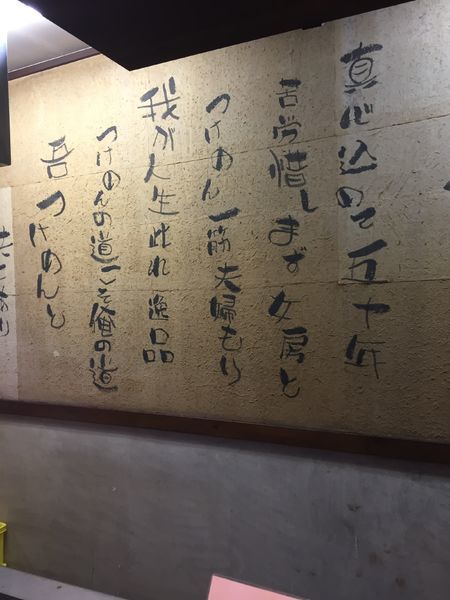 真心込めて五十年
苦労惜しまず女房と
つけめん一筋夫婦もり
我が人生此れ逸品
つけめんの道こそ俺の道
吾つけめんと
共にあり